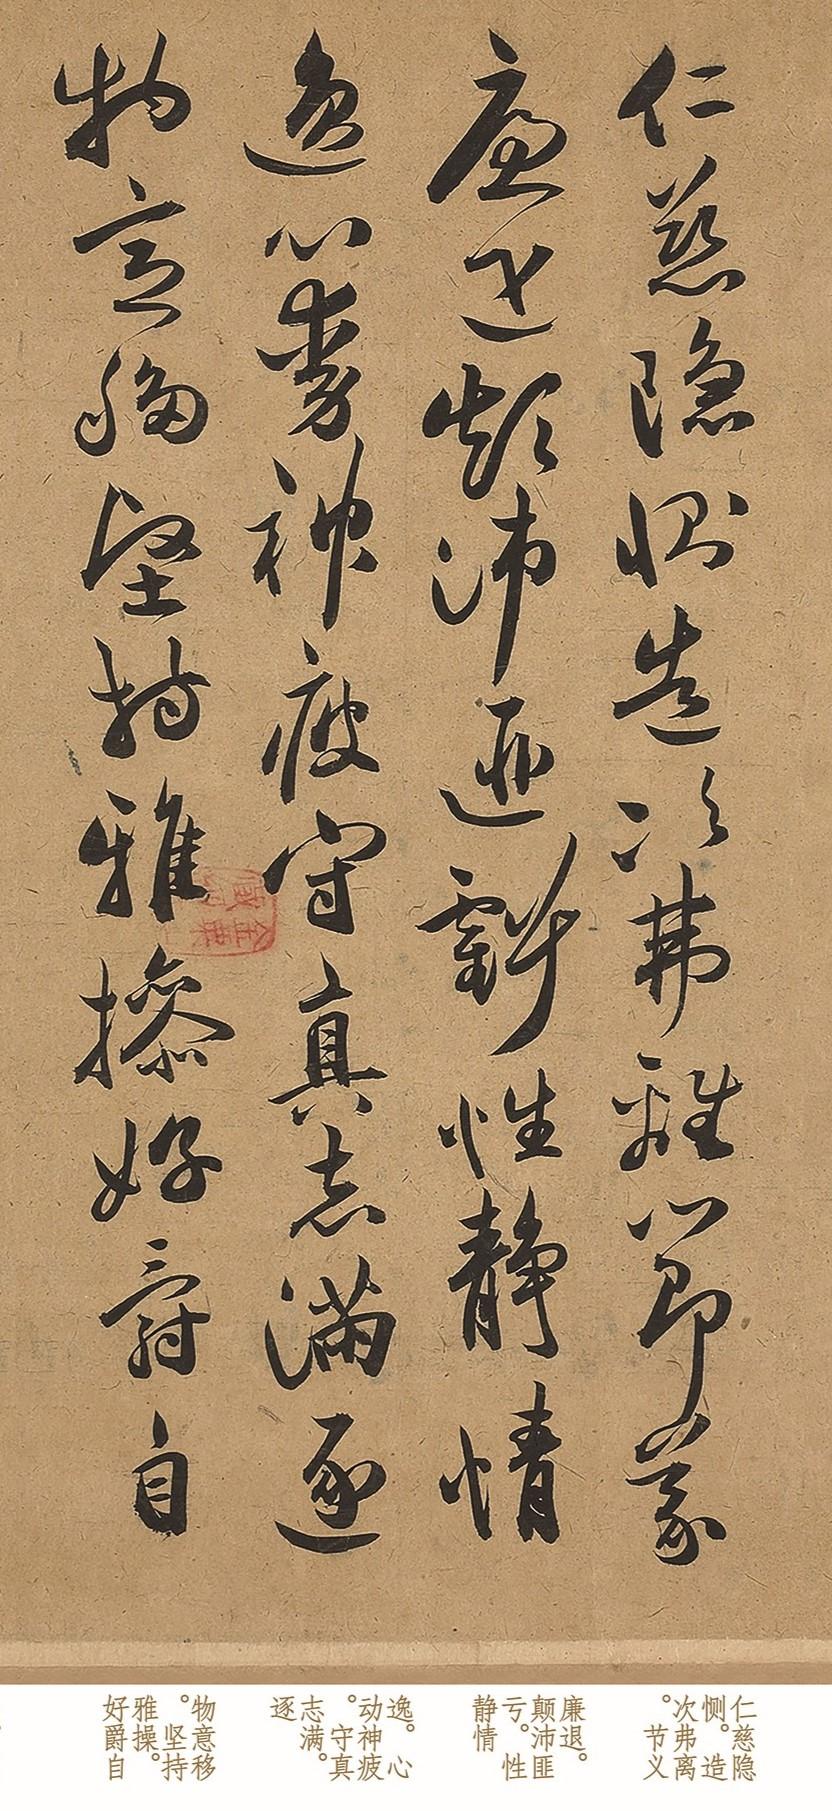 仁慈隐恻造次弗离节義
廉退颠沛匪虧性静情
逸心動神疲守真志满逐
物意移坚持雅操好爵自
仁慈隐
恻。造
次弗离
。节义
廉退。
颠沛匪
亏。性
静情
逸。心
动神疲
。守真
志满。
逐
物意移
。坚持
雅操。
好爵自